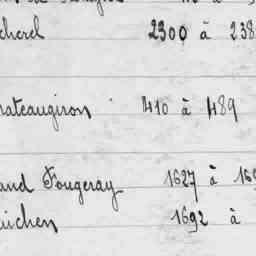 cherel 2300 à 238
hateaugiron 410 à 489
and Fougeray 1627 à 169
uichen 1692 à